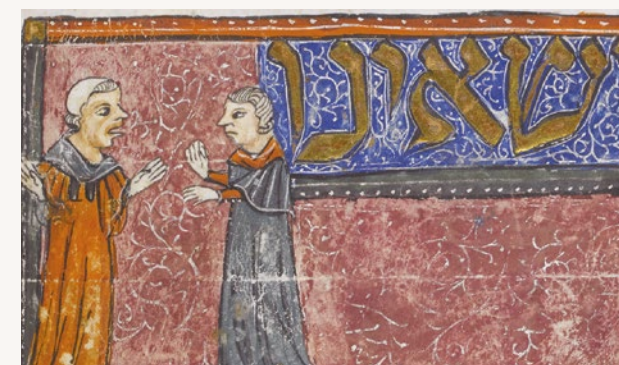 שאינו